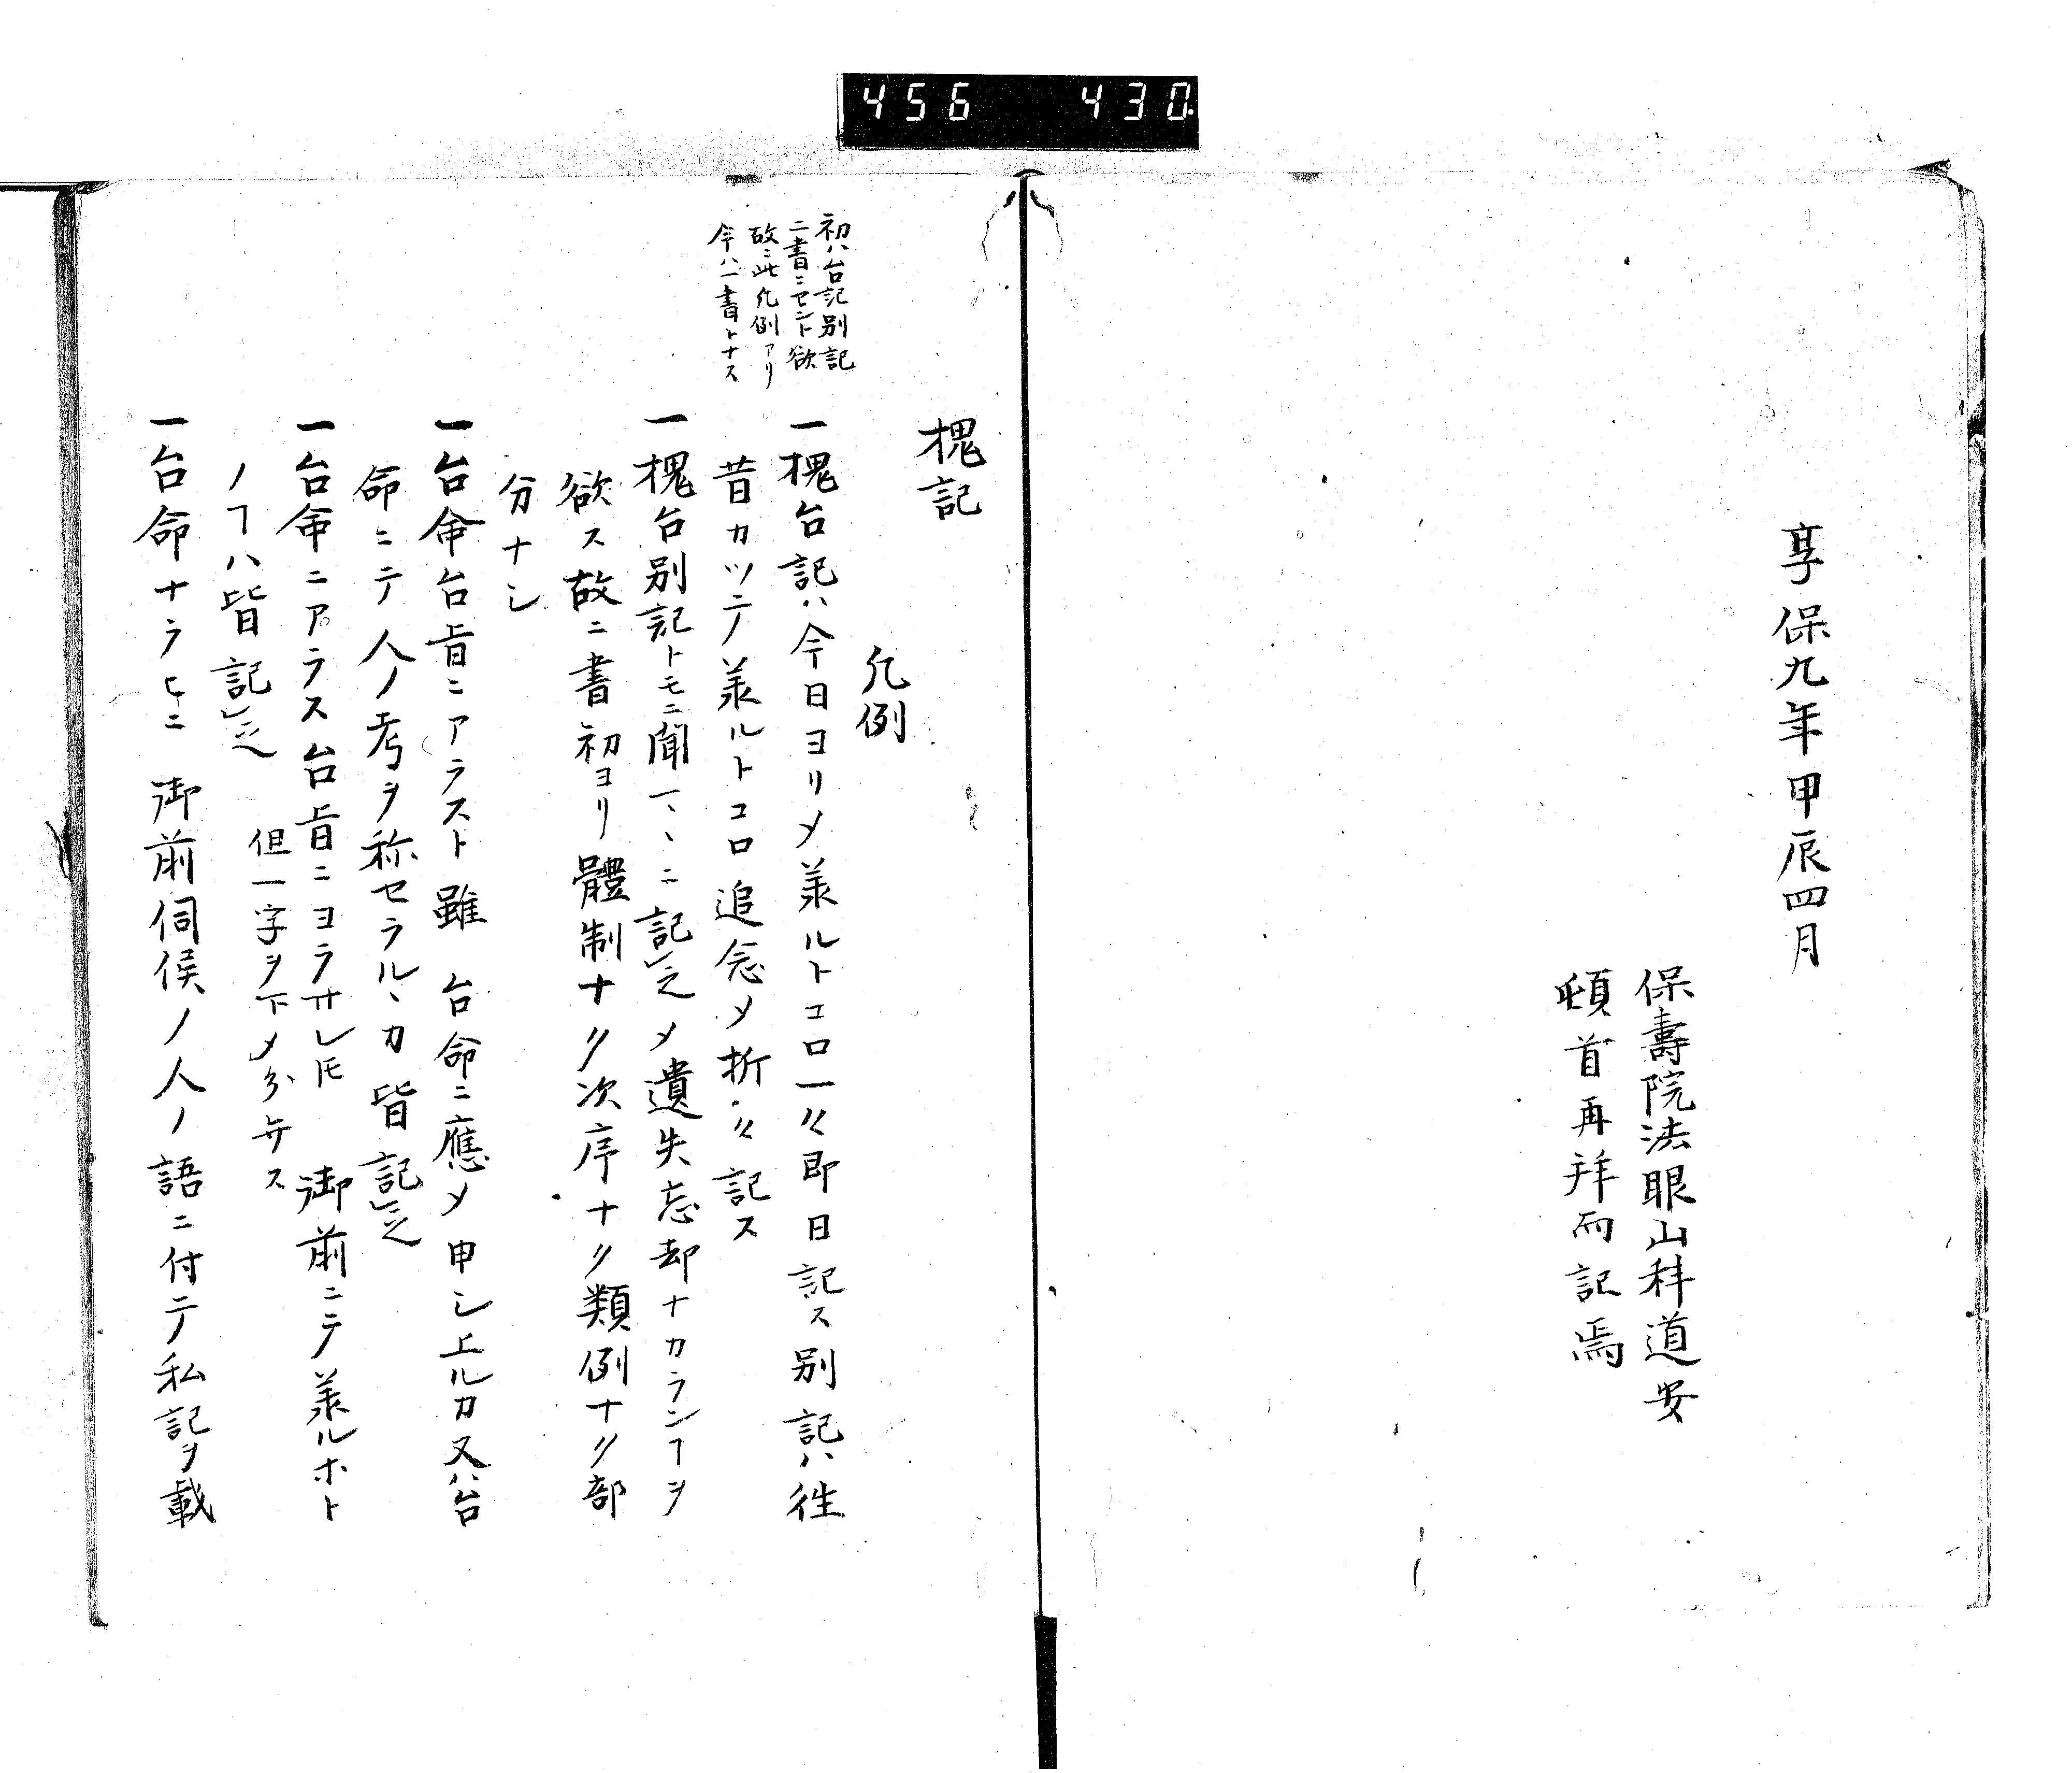 456 430
享保九年甲辰四月
保壽院法眼山科道安
頓首再拜而記焉
槐記
凡例
初ハ台記別記
二書ニセント欲
故ニ此凡例アリ
今ハ一書トナス
一槐台記ハ今日ヨリ〆羕ルトコロ一〻即日記ス別記ハ徃
昔カツテ羕ルトコロ追念〆折〻記ス
一槐台別記トモニ聞一〻ニ記㆑之〆遺失忘却ナカランヿヲ
欲ス故ニ書初ヨリ體制ナク次序ナク類例ナク部
分ナシ
一台命台旨ニアラスト雖 台命ニ應〆申シ上ルカ又ハ台
命ニテ人ノ考ヲ称セラルヽカ皆記㆑之
一台命ニアラス台旨ニヨラサレ𪜈 御前ニテ羕ルホト
ノヿハ皆記㆑之 但一字ヲ下〆分弁ス
一台命ナラヒニ 御前伺候ノ人ノ語ニ付テ私記ヲ載